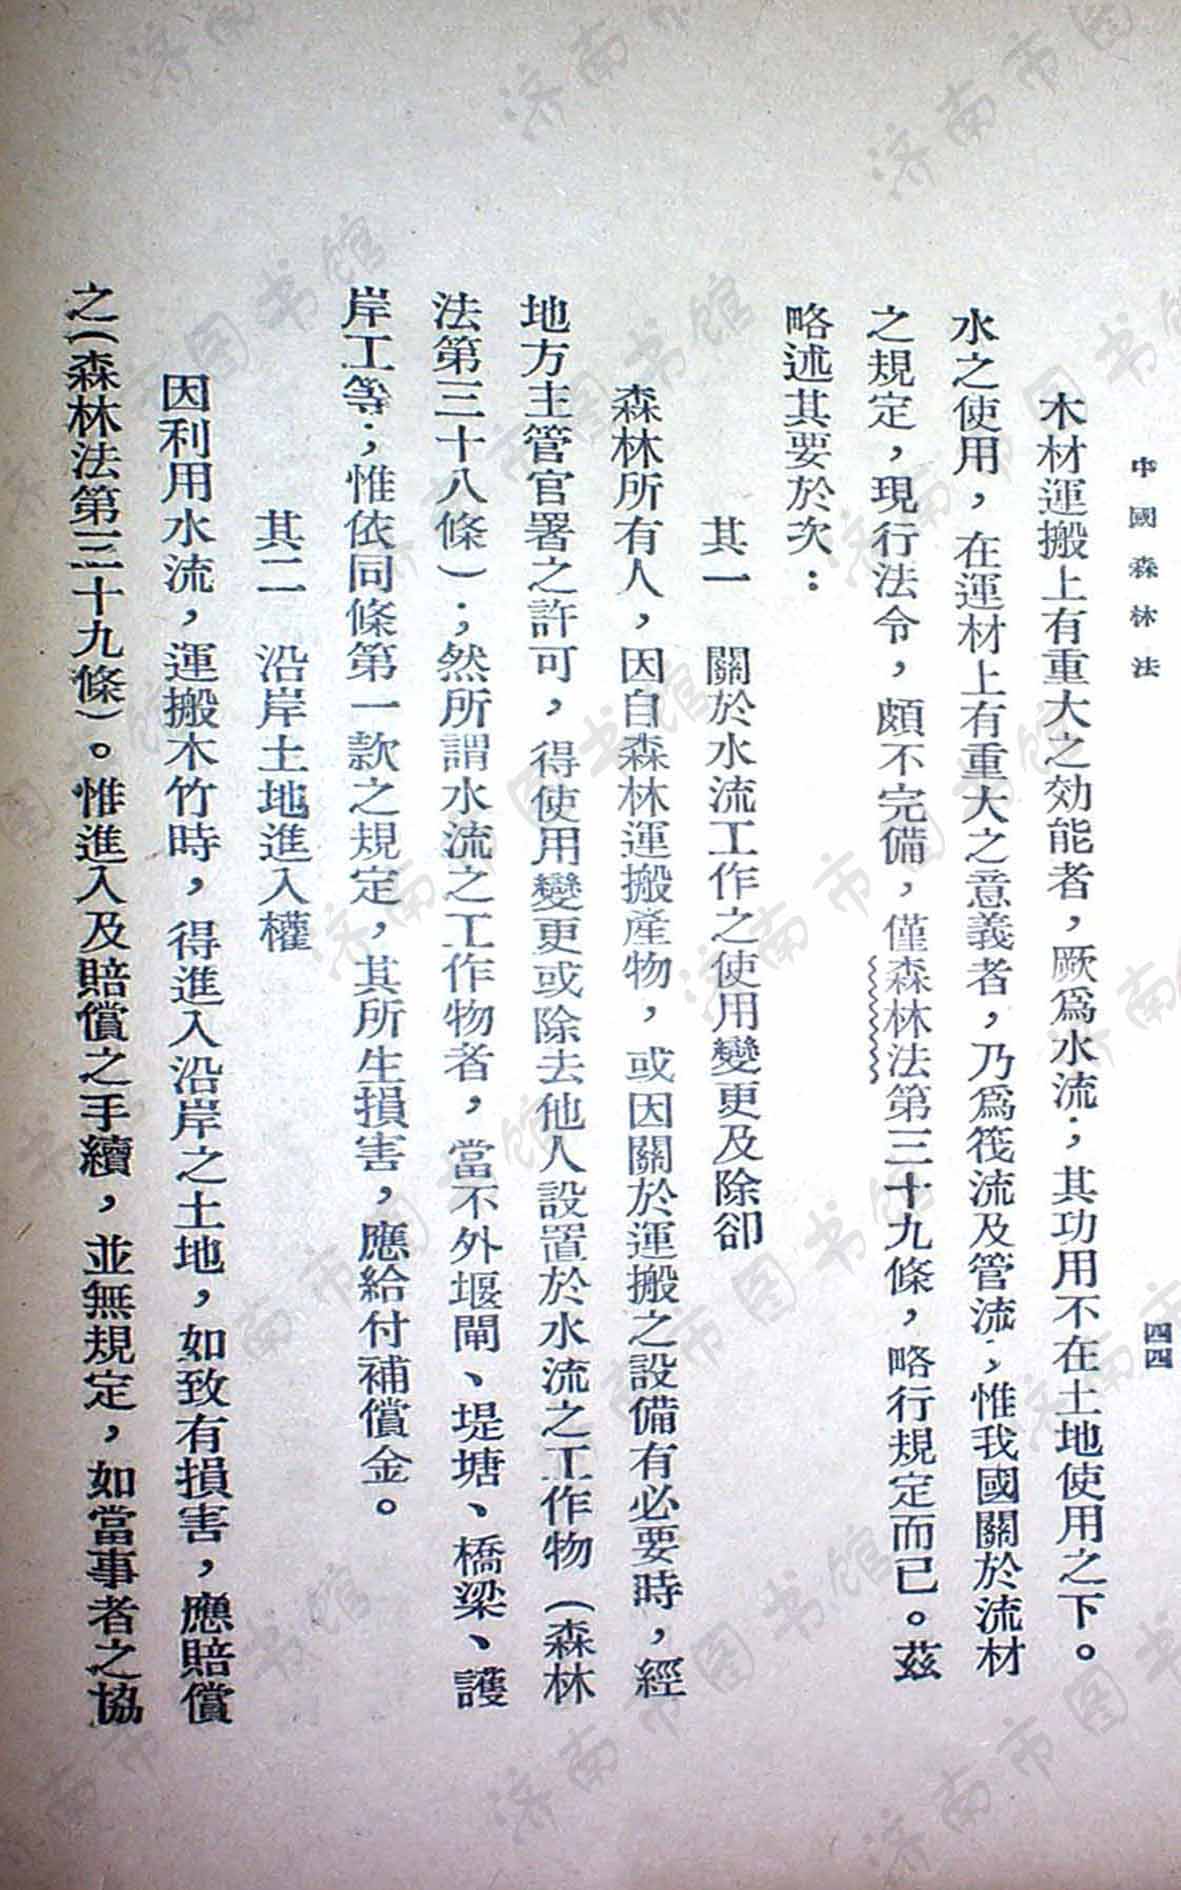 中國森林法
四四
木材運搬上有重大之効能者，厥為水流；其功用不在土地使用之下。
水之使用，在運材上有重大之意義者，乃為筏流及管流；惟我國關於流材
之規定，現行法令，頗不完備，僅森林法第三十九條，略行規定而已。茲
略述其要於次：
其一　關於水流工作之使用變更及除卻
森林所有人，因自森林運搬產物，或因關於運搬之設備有必要時，經
地方主管官署之許可，得使用變更或除去他人設置於水流之工作物（森林
法第三十八條）；然所謂水流之工作物者，當不外堰閘、堤塘、橋梁、護
岸工等；惟依同條第一款之規定，其所生損害，應給付補償金。
其二　沿岸土地進入權
因利用水流，運搬木竹時，得進入沿岸之土地，如致有損害，應賠償
之（森林法第三十九條）。惟進入及賠償之手續，並無規定，如當事者之協
济南市图书馆